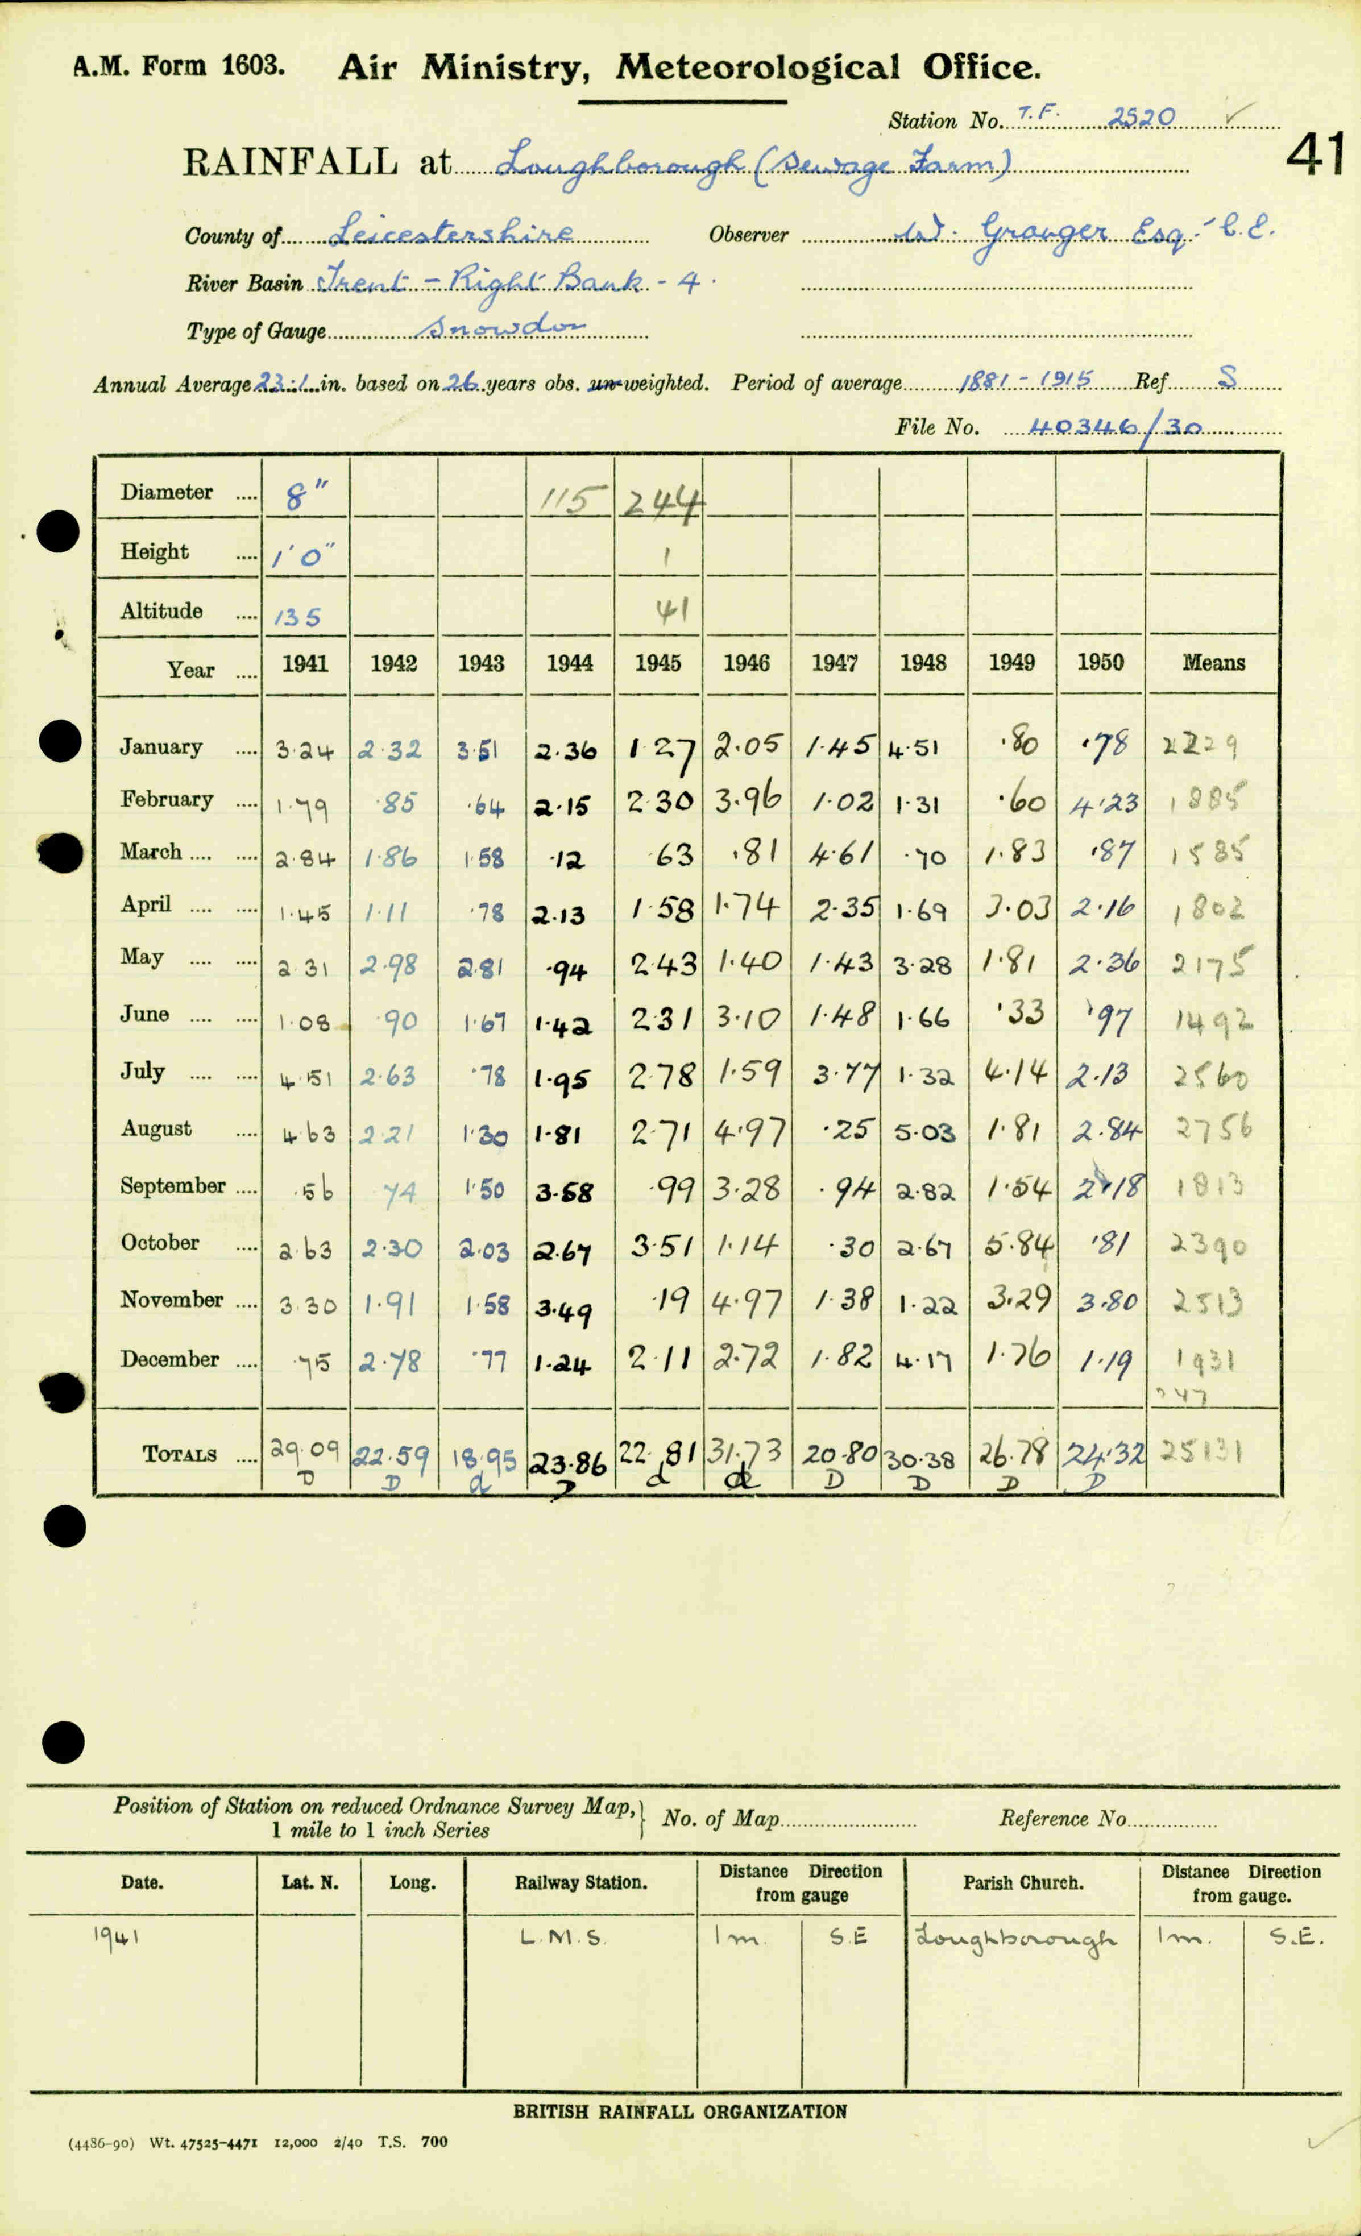 A.M. Form 1603. Air Ministry, Meteorological Office.
Station No. T.F. 2520 ✓
41
RAINFALL at Loughborough (Sewage Farm)
County of Leicestershire Observer W. Granger Esq. C.E.
River Basin Trent - Right Bank - 4.
Type of Gauge Snowdon
Annual Average 23.1 in. based on 26 years obs. un-weighted. Period of average 1881 - 1915 Ref S
File No. 40346/30
Diameter .... 8" 115 244
Height .... 1'0" 1
Altitude .... 135 41
Year .... 1941 1942 1943 1944 1945 1946 1947 1948 1949 1950 Means
January .... 3.24 2.32 3.51 2.36 1.27 2.05 1.45 4.51 .80 .78 2229
February .... 1.79 .85 .64 2.15 2.30 3.96 1.02 1.31 .60 4.23 1885
March .... .... 2.84 1.86 1.58 .12 .63 .81 4.61 .70 1.83 .87 1585
April .... .... 1.45 1.11 .78 2.13 1.58 1.74 2.35 1.69 3.03 2.16 1802
May .... .... 2.31 2.98 2.81 .94 2.43 1.40 1.43 3.28 1.81 2.36 2175
June .... .... 1.08 .90 1.67 1.42 2.31 3.10 1.48 1.66 .33 .97 1492
July .... .... 4.51 2.63 .78 1.95 2.78 1.59 3.77 1.32 4.14 2.13 2560
August .... 4.63 2.21 1.30 1.81 2.71 4.97 .25 5.03 1.81 2.84 2756
September .... .56 .74 1.50 3.58 .99 3.28 .94 2.82 1.54 2.18 1813
October .... 2.63 2.30 2.03 2.67 3.51 1.14 .30 2.67 5.84 .81 2390
November .... 3.30 1.91 1.58 3.49 .19 4.97 1.38 1.22 3.29 3.80 2513
December .... .75 2.78 .77 1.24 2.11 2.72 1.82 4.17 1.76 1.19 1931
TOTALS .... 29.09 22.59 18.95 23.86 22.81 31.73 20.80 30.38 26.78 24.32 25131
D D d D d d D D D D
Position of Station on reduced Ordnance Survey Map, } No. of Map Reference No.
1 mile to 1 inch Series
Date. Lat. N. Long. Railway Station. Distance Direction from gauge Parish Church. Distance Direction from gauge.
1941 L.M.S. 1m. S.E Loughborough 1m. S.E.
BRITISH RAINFALL ORGANIZATION
(4486-90) Wt. 47525-4471 12,000 2/40 T.S. 700